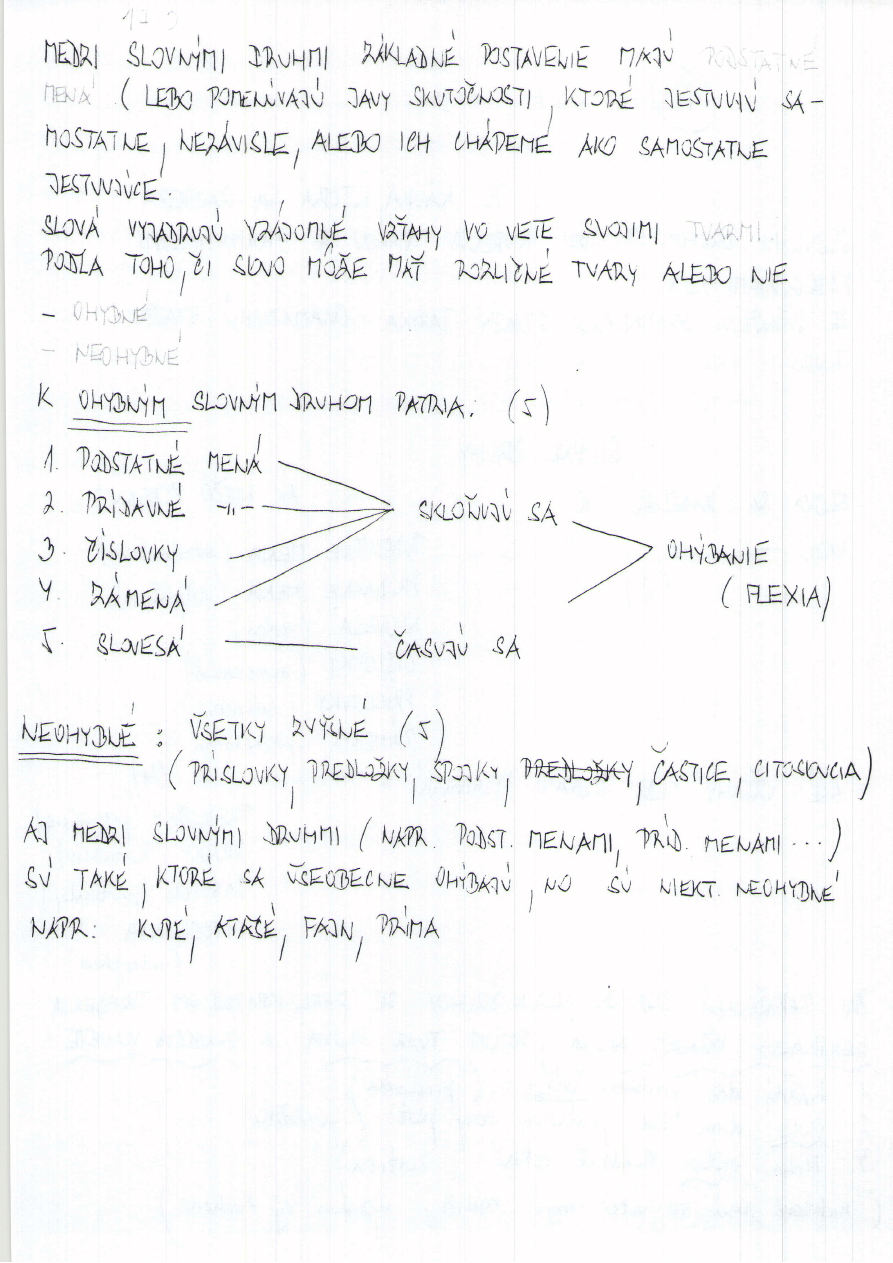 MEDZI SLOVNÝMI DRUHMI ZÁKLADNÉ POSTAVENIE MAJÚ PODSTATNÉ
MENÁ (LEBO POMENÚVAJÚ JAVY SKUTOČNOSTI, KTORÉ JESTVUJÚ SA-
MOSTATNE, NEZÁVISLE, ALEBO ICH CHÁPEME AKO SAMOSTATNE
JESTVUJÚCE.
SLOVÁ VYJADRUJÚ VZÁJOMNÉ VZŤAHY VO VETE SVOJIMI TVARMI.
PODĽA TOHO, ČI SLOVO MÔŽE MAŤ ROZLIČNÉ TVARY ALEBO NIE
- OHYBNÉ
- NEOHYBNÉ
K OHYBNÝM SLOVNÝM DRUHOM PATRIA: (5)
1. PODSTATNÉ MENÁ
2. PRÍDAVNÉ -„- SKLOŇUJÚ SA
3. ČÍSLOVKY OHÝBANIE
4. ZÁMENÁ (FLEXIA)
5. SLOVESÁ ČASUJÚ SA
NEOHYBNÉ: VŠETKY ZVYŠNÉ (5)
(PRÍSLOVKY, PREDLOŽKY, SPOJKY, PREDLOŽKY, ČASTICE, CITOSLOVCIA)
AJ MEDZI SLOVNÝMI DRUHMI (NAPR. PODST. MENAMI, PRÍD. MENAMI ...)
SÚ TAKÉ, KTORÉ SA VŠEOBECNE OHÝBAJÚ, NO SÚ NIEKT. NEOHYBNÉ
NAPR: KUPÉ, ATAŠÉ, FAJN, PRÍMA